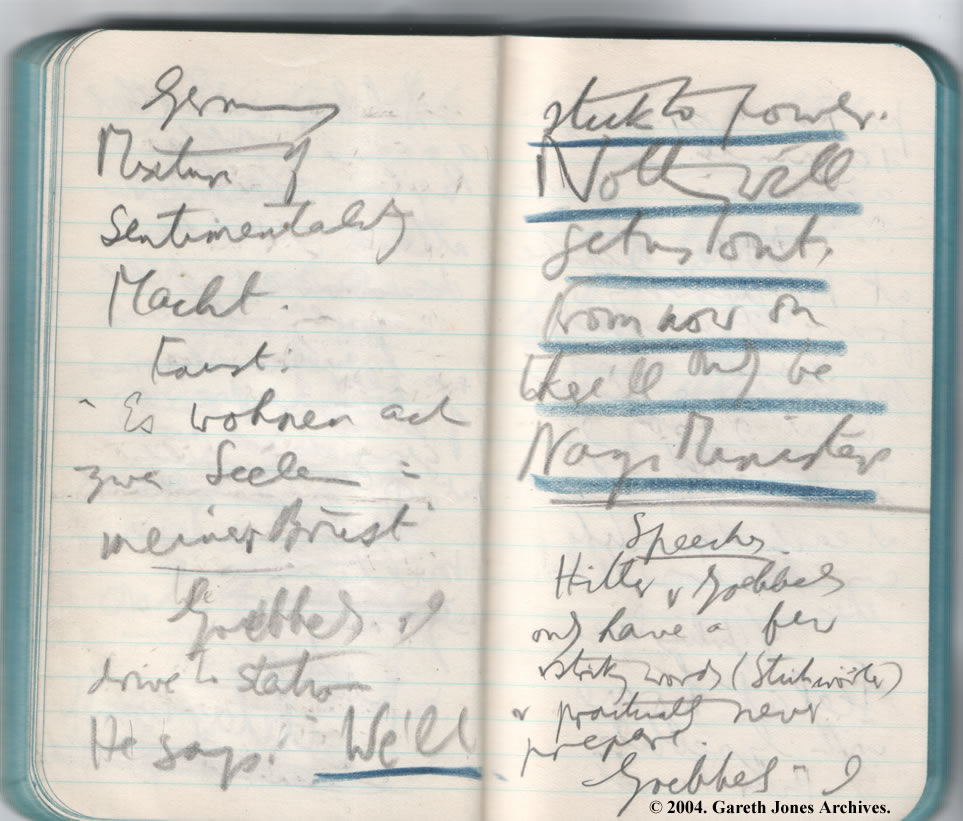 Germany
Mixture of
Sentimentality
Macht.
Faust:
"Es wohnen ach
zwei Seelen in
meiner Brust"
Goebbels & I
drive to station
He says: We'll
stick to power.
Nothing will
get us out.
From now on
there'll only be
Nazi Ministers
Speeches.
Hitler & Goebbels
only have a few
words (Stichwörter)
& practically never
prepare.
Goebbels & I
© 2004. Gareth Jones Archives.